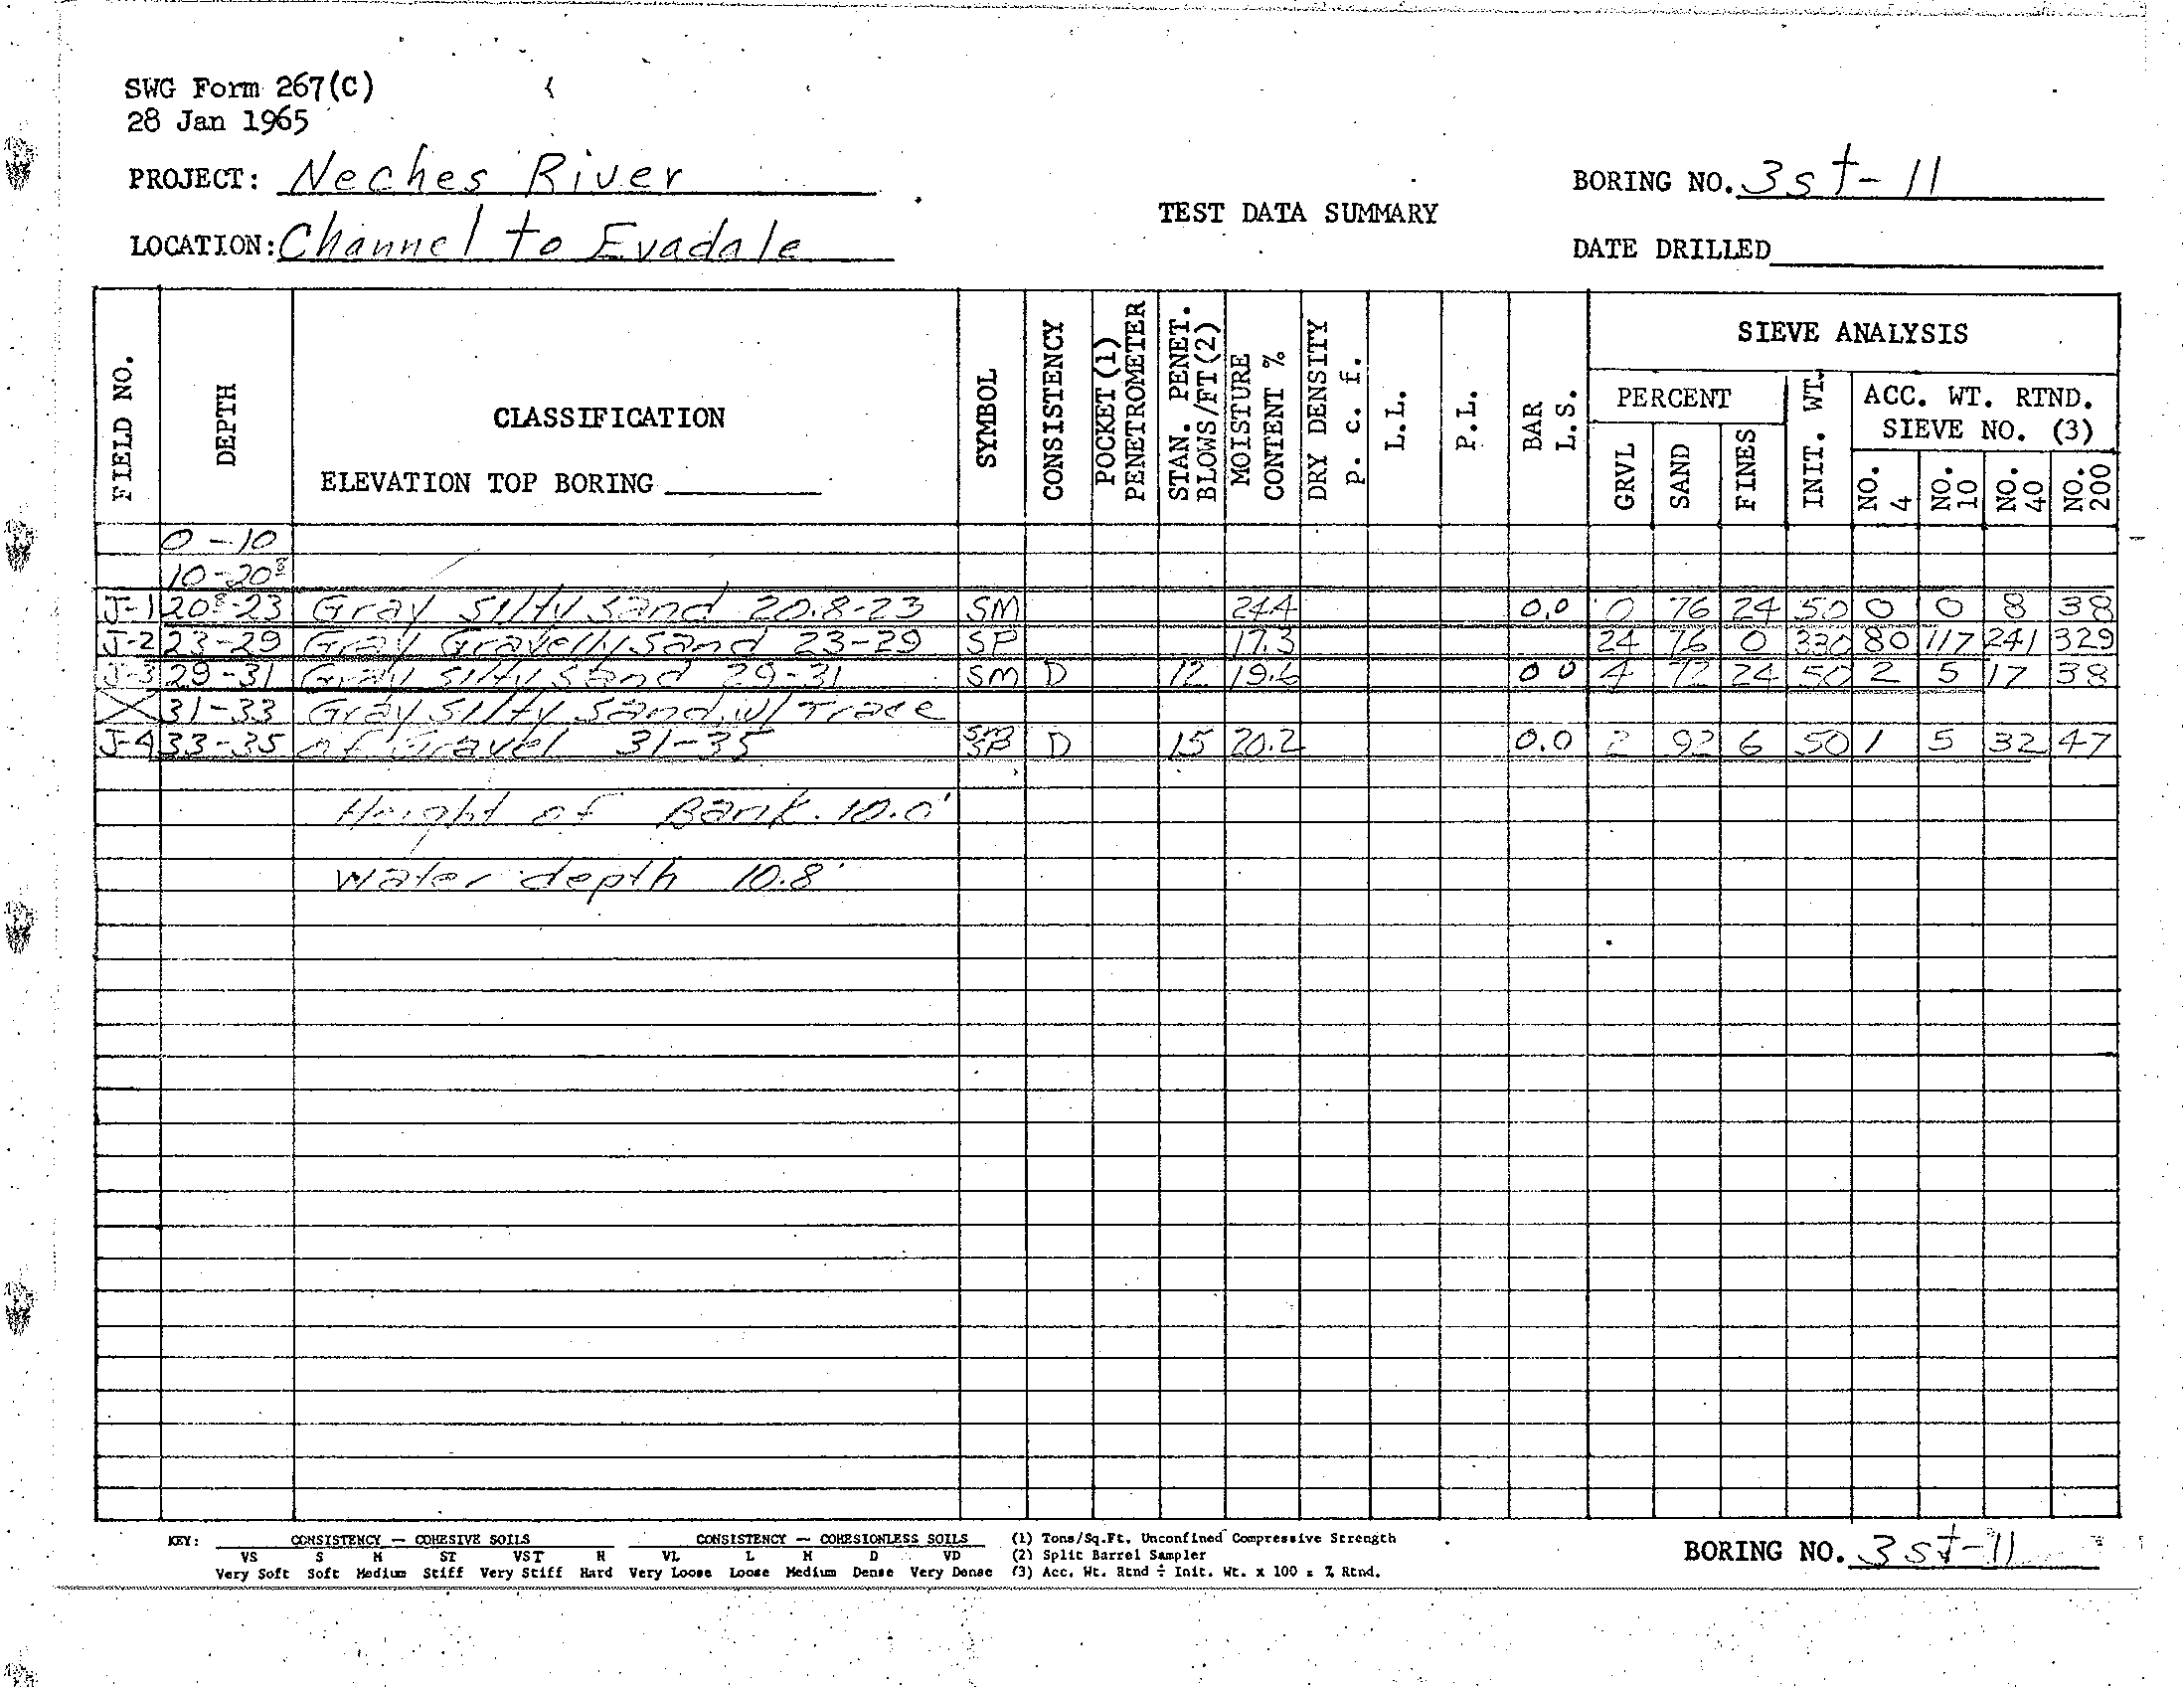 SWG Form 267(C)
28 Jan 1965
PROJECT: Neches River
BORING NO. 3st-11
TEST DATA SUMMARY
LOCATION: Channel to Evadale
DATE DRILLED
FIELD NO. DEPTH CLASSIFICATION SYMBOL CONSISTENCY POCKET (1) PENETROMETER STAN. PENET. BLOWS/FT (2) MOISTURE CONTENT % DRY DENSITY p. c. f. L.L. P.L. BAR L.S. SIEVE ANALYSIS
ELEVATION TOP BORING
PERCENT INIT. WT. ACC. WT. RTND. SIEVE NO. (3)
GRVL SAND FINES NO. 4 NO. 10 NO. 40 NO. 200
0-10
10-20.8
J-1 20.8-23 Gray Silty Sand 20.8-23 SM 24.4 0.0 0 76 24 50 0 0 8 38
J-2 23-29 Gray Gravelly Sand 23-29 SP 17.3 24 76 0 330 80 117 241 329
J-3 29-31 Gray Silty Sand 29-31 SM D 12 19.6 0 0 4 72 24 50 2 5 17 38
X 31-33 Gray Silty Sand w/ Trace
J-4 33-35 of Gravel 31-35 SM SP D 15 20.2 0.0 2 92 6 50 1 5 32 47
Height of Bank. 10.0'
Water depth 10.8'
KEY: CONSISTENCY — COHESIVE SOILS CONSISTENCY — COHESIONLESS SOILS (1) Tons/Sq.Ft. Unconfined Compressive Strength
VS S M ST VST H VL L M D VD (2) Split Barrel Sampler
Very Soft Soft Medium Stiff Very Stiff Hard Very Loose Loose Medium Dense Very Dense (3) Acc. Wt. Rtnd ÷ Init. Wt. x 100 = % Rtnd.
BORING NO. 3st-11